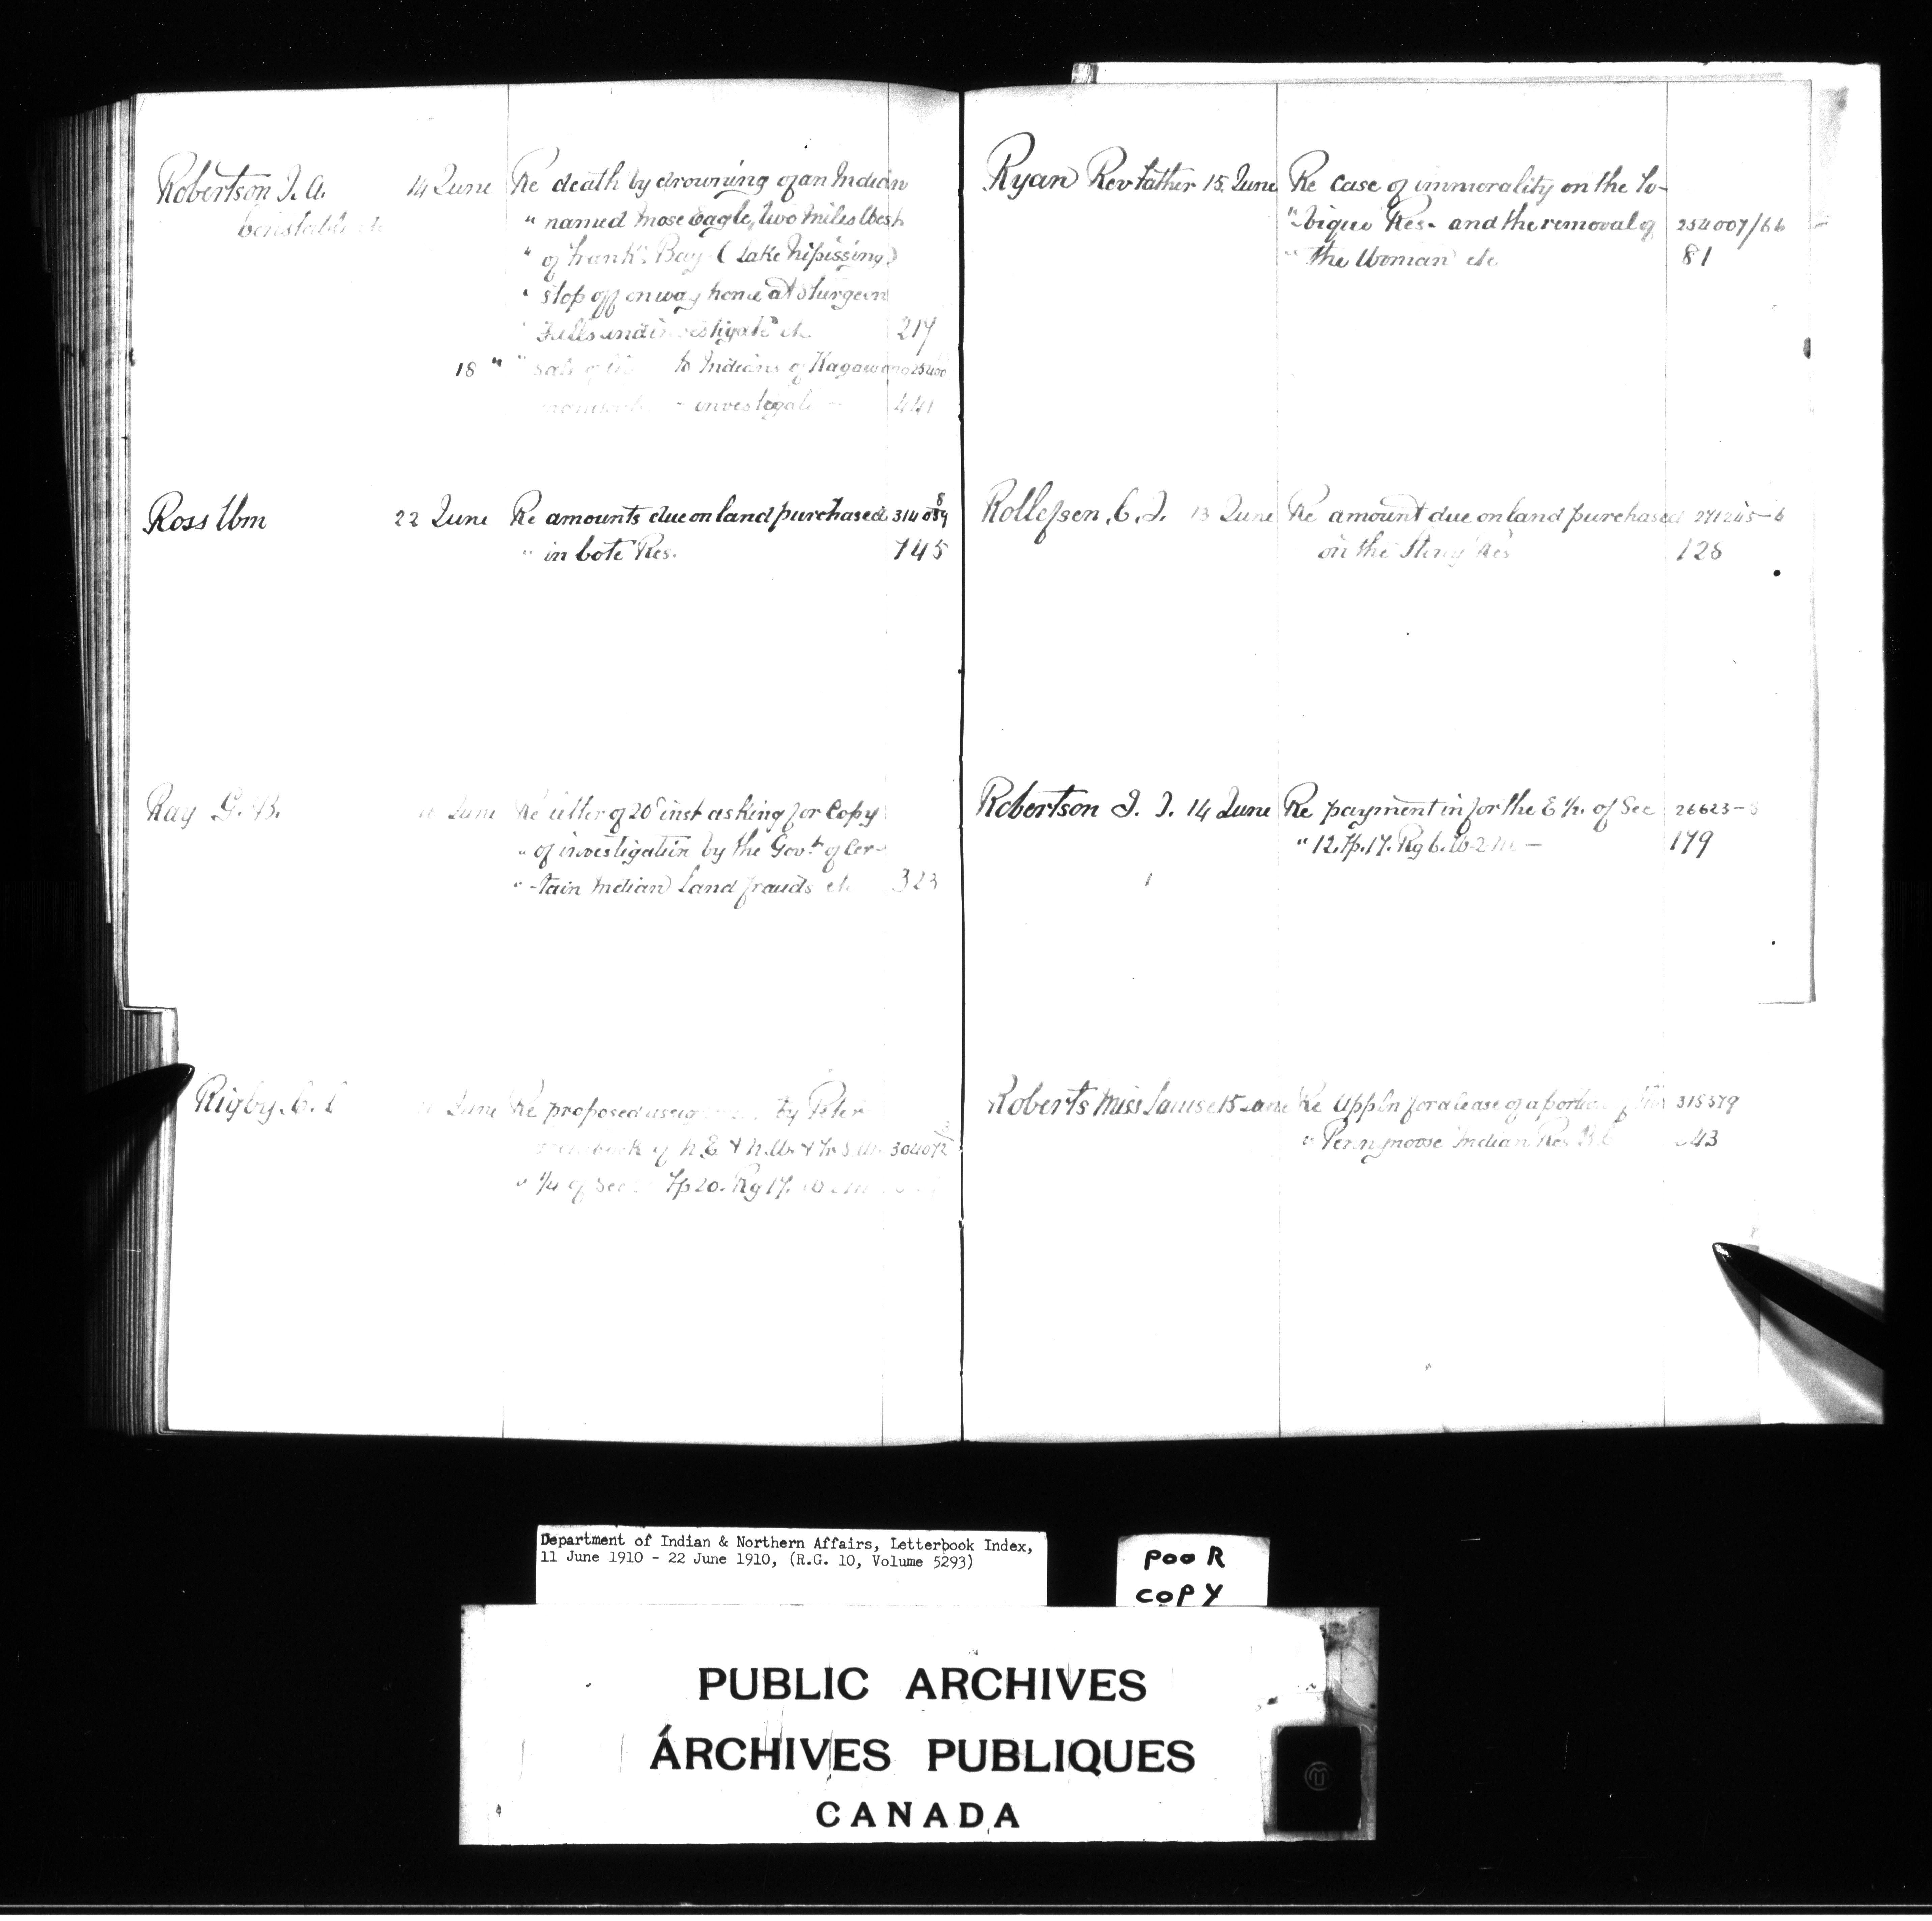 Robertson J. A. 14 June Re death by drowning of an Indian
" named Mose Eagle, two miles West
" of Frank's Bay (Lake Nipissing)
" stop off on way home at Sturgeon
Falls and investigate etc 217
18 " " Sale of to Indians of Kagawong
- investigate - 441
Ross Wm 22 June Re amounts due on land purchased 314089
" in Cote Res. 745
Ray G. B. June Re letter of 20th inst asking for Copy
" of investigation by the Govt. of Cer-
" -tain Indian Land frauds etc 323
Rigby. C. June Re proposed by Peter
of N.E & N.W. 304072
" 1/4 of Sec Tp 20. Rg 17.
Ryan Rev Father 15. June Re case of immorality on the To-
"-bique Res- and the removal of 254007/66
" the Woman etc 81
Rollefsen, C. J. 13 June Re amount due on land purchased 271245-6
on the Stony Res 128
Robertson J. J. 14 June Re payment in for the E 1/2. of Sec 26623-
" 12. Tp. 17. Rg 6. W-2 M - 179
Roberts Miss Louise 15 June Re Appln for a lease of a portion 315379
" Pennymowe Indian Res B.C 43
Department of Indian & Northern Affairs, Letterbook Index,
11 June 1910 - 22 June 1910, (R.G. 10, Volume 5293)
POOR
COPY
PUBLIC ARCHIVES
ARCHIVES PUBLIQUES
CANADA